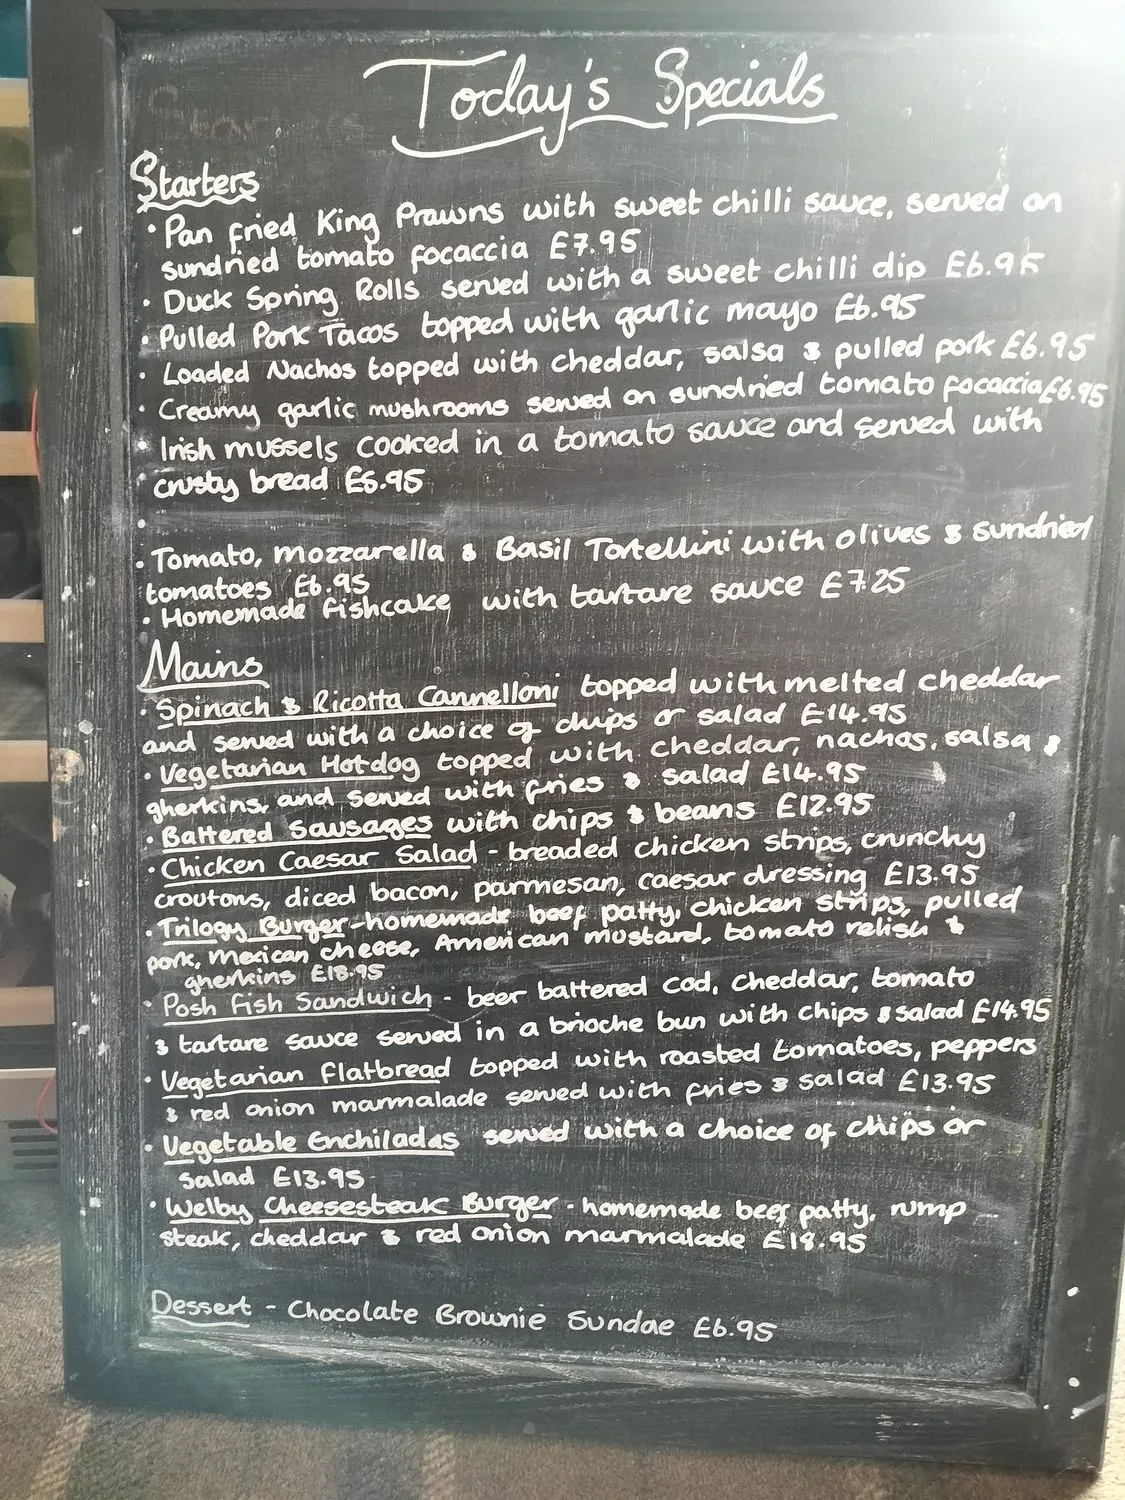 Today's Specials
Starters
• Pan fried King Prawns with sweet chilli sauce, served on
sundried tomato focaccia £7.95
• Duck Spring Rolls served with a sweet chilli dip £6.95
• Pulled Pork Tacos topped with garlic mayo £6.95
• Loaded Nachos topped with cheddar, salsa & pulled pork £6.95
• Creamy garlic mushrooms served on sundried tomato focaccia £6.95
• Irish mussels cooked in a tomato sauce and served with
crusty bread £6.95
•
• Tomato, mozzarella & Basil Tortellini with olives & sundried
tomatoes £6.95
• Homemade fishcake with tartare sauce £7.25
Mains
• Spinach & Ricotta Cannelloni topped with melted cheddar
and served with a choice of chips or salad £14.95
• Vegetarian Hotdog topped with cheddar, nachos, salsa &
gherkins, and served with fries & salad £14.95
• Battered Sausages with chips & beans £12.95
• Chicken Caesar Salad - breaded chicken strips, crunchy
croutons, diced bacon, parmesan, caesar dressing £13.95
• Trilogy Burger - homemade beef patty, chicken strips, pulled
pork, mexican cheese, American mustard, tomato relish &
gherkins £18.95
• Posh Fish Sandwich - beer battered cod, cheddar, tomato
& tartare sauce served in a brioche bun with chips & salad £14.95
• Vegetarian Flatbread topped with roasted tomatoes, peppers
& red onion marmalade served with fries & salad £13.95
• Vegetable Enchiladas served with a choice of chips or
salad £13.95
• Welby Cheesesteak Burger - homemade beef patty, rump
steak, cheddar & red onion marmalade £18.95
Dessert - Chocolate Brownie Sundae £6.95